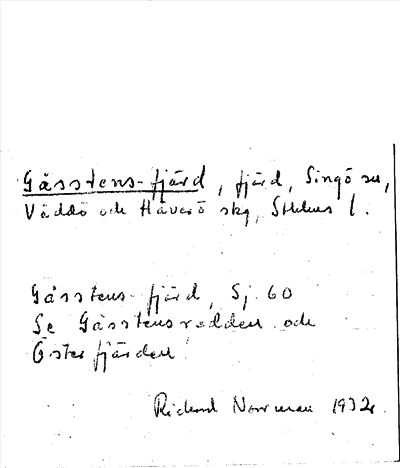 Gåsstens-fjärd, fjärd, Singö sn,
Väddö och Häverö skg, Sthlms l.
Gåsstens-fjärd, Sj. 60
Se Gåsstensredden och
Österfjärden
Rickard Norrman 1932.